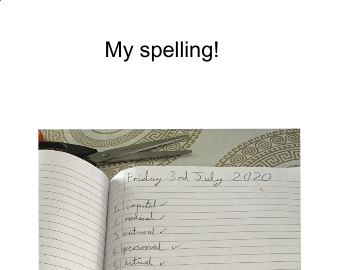 My spelling!
Friday 3rd July 2020
1. capital ✓
2. medical ✓
3. natural ✓
4. personal ✓
5. actual ✓